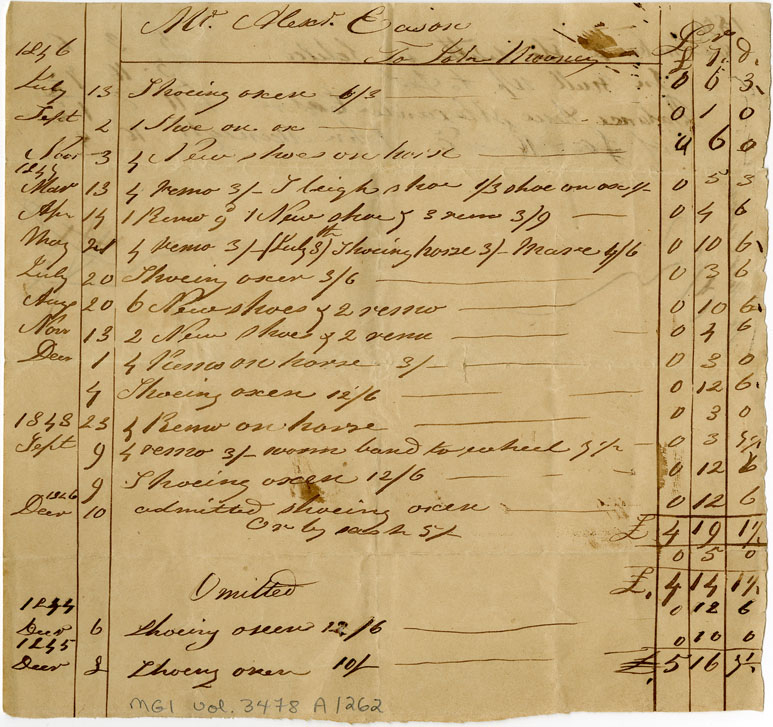 Mr. Alexr. Eason
1846 To John Rooney £ s. d.
July 13 Shoeing oxen 6/3 0 6 3
Sept 2 1 Shoe on ox 0 1 0
Novr 3 4 New shoes on horse 0 6 0
Mar 13 4 remo 3/- Sleigh shoe 1/3 shoe on ox 1/- 0 5 3
Apr 14 1 Remo & 1 New shoe & 3 remo 3/9 0 4 6
May 21 4 remo 3/- (July 8th) Shoeing horse 3/- Mare 4/6 0 10 6
July 20 Shoeing oxen 3/6 0 3 6
Aug 20 6 New shoes & 2 remo 0 10 6
Novr 13 2 New shoes & 2 remo 0 4 6
Decr 1 4 Remo on horse 3/- 0 3 0
4 Shoeing oxen 12/6 0 12 6
1848 23 4 Remo on horse 0 3 0
Sept 9 4 remo 3/- worm band to wheel 0 3
9 Shoeing oxen 12/6 0 12 6
1846
Decr 10 admitted shoeing oxen 0 12 6
Cr by cash 5/- £ 4 19 1½
0 5 0
Omitted £. 4 14 1½
1844 0 12 6
Decr 6 Shoeing oxen 12/6
1845 0 10 0
Decr 8 Shoeing oxen 10/- £ 5 16
MG1 vol. 3478 A1262